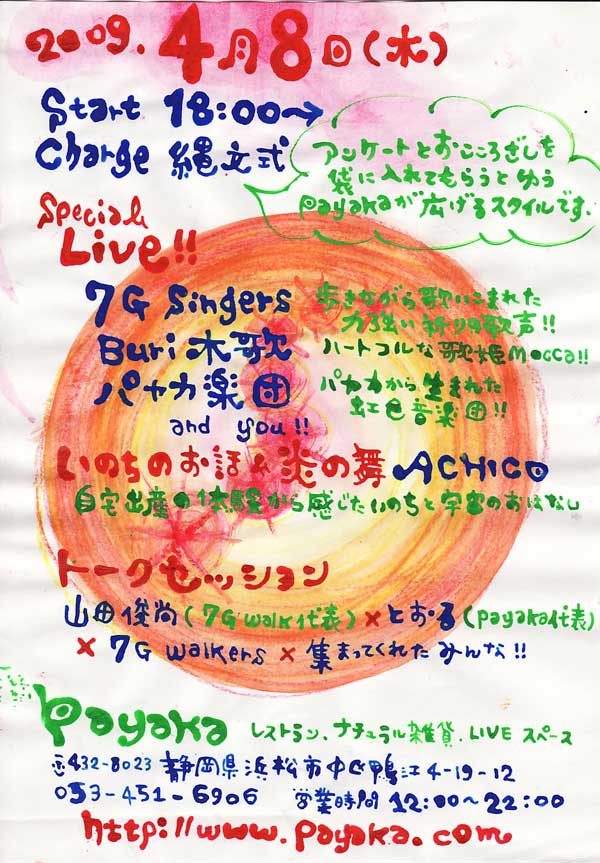 2009.4月8日(木)
Start 18:00〜→
Charge 縄文式
アンケートとおこころざしを
袋に入れてもらうとゆう
payakaが広げるスタイルです.
Special
Live!!
7G Singers
歩きながら歌いこまれた
力強い祈りの歌声!!
Buri 木歌
ハートフルな歌姫Mocca!!
パヤカ楽団
パヤカから生まれた
虹色音楽団!!
and you!!
いのちのお話&炎の舞 ACHICO
自宅出産の体験から感じたいのちと宇宙のおはなし
トークセッション
山田俊尚(7G walk代表)×とおる(payaka代表)
× 7G walkers × 集まってくれたみんな!!
payaka
レストラン.ナチュラル雑貨.LIVE スペース
〒432-8023 静岡県浜松市中区鴨江4-19-12
053-451-6906 営業時間 12:00〜22:00
http://www.payaka.com